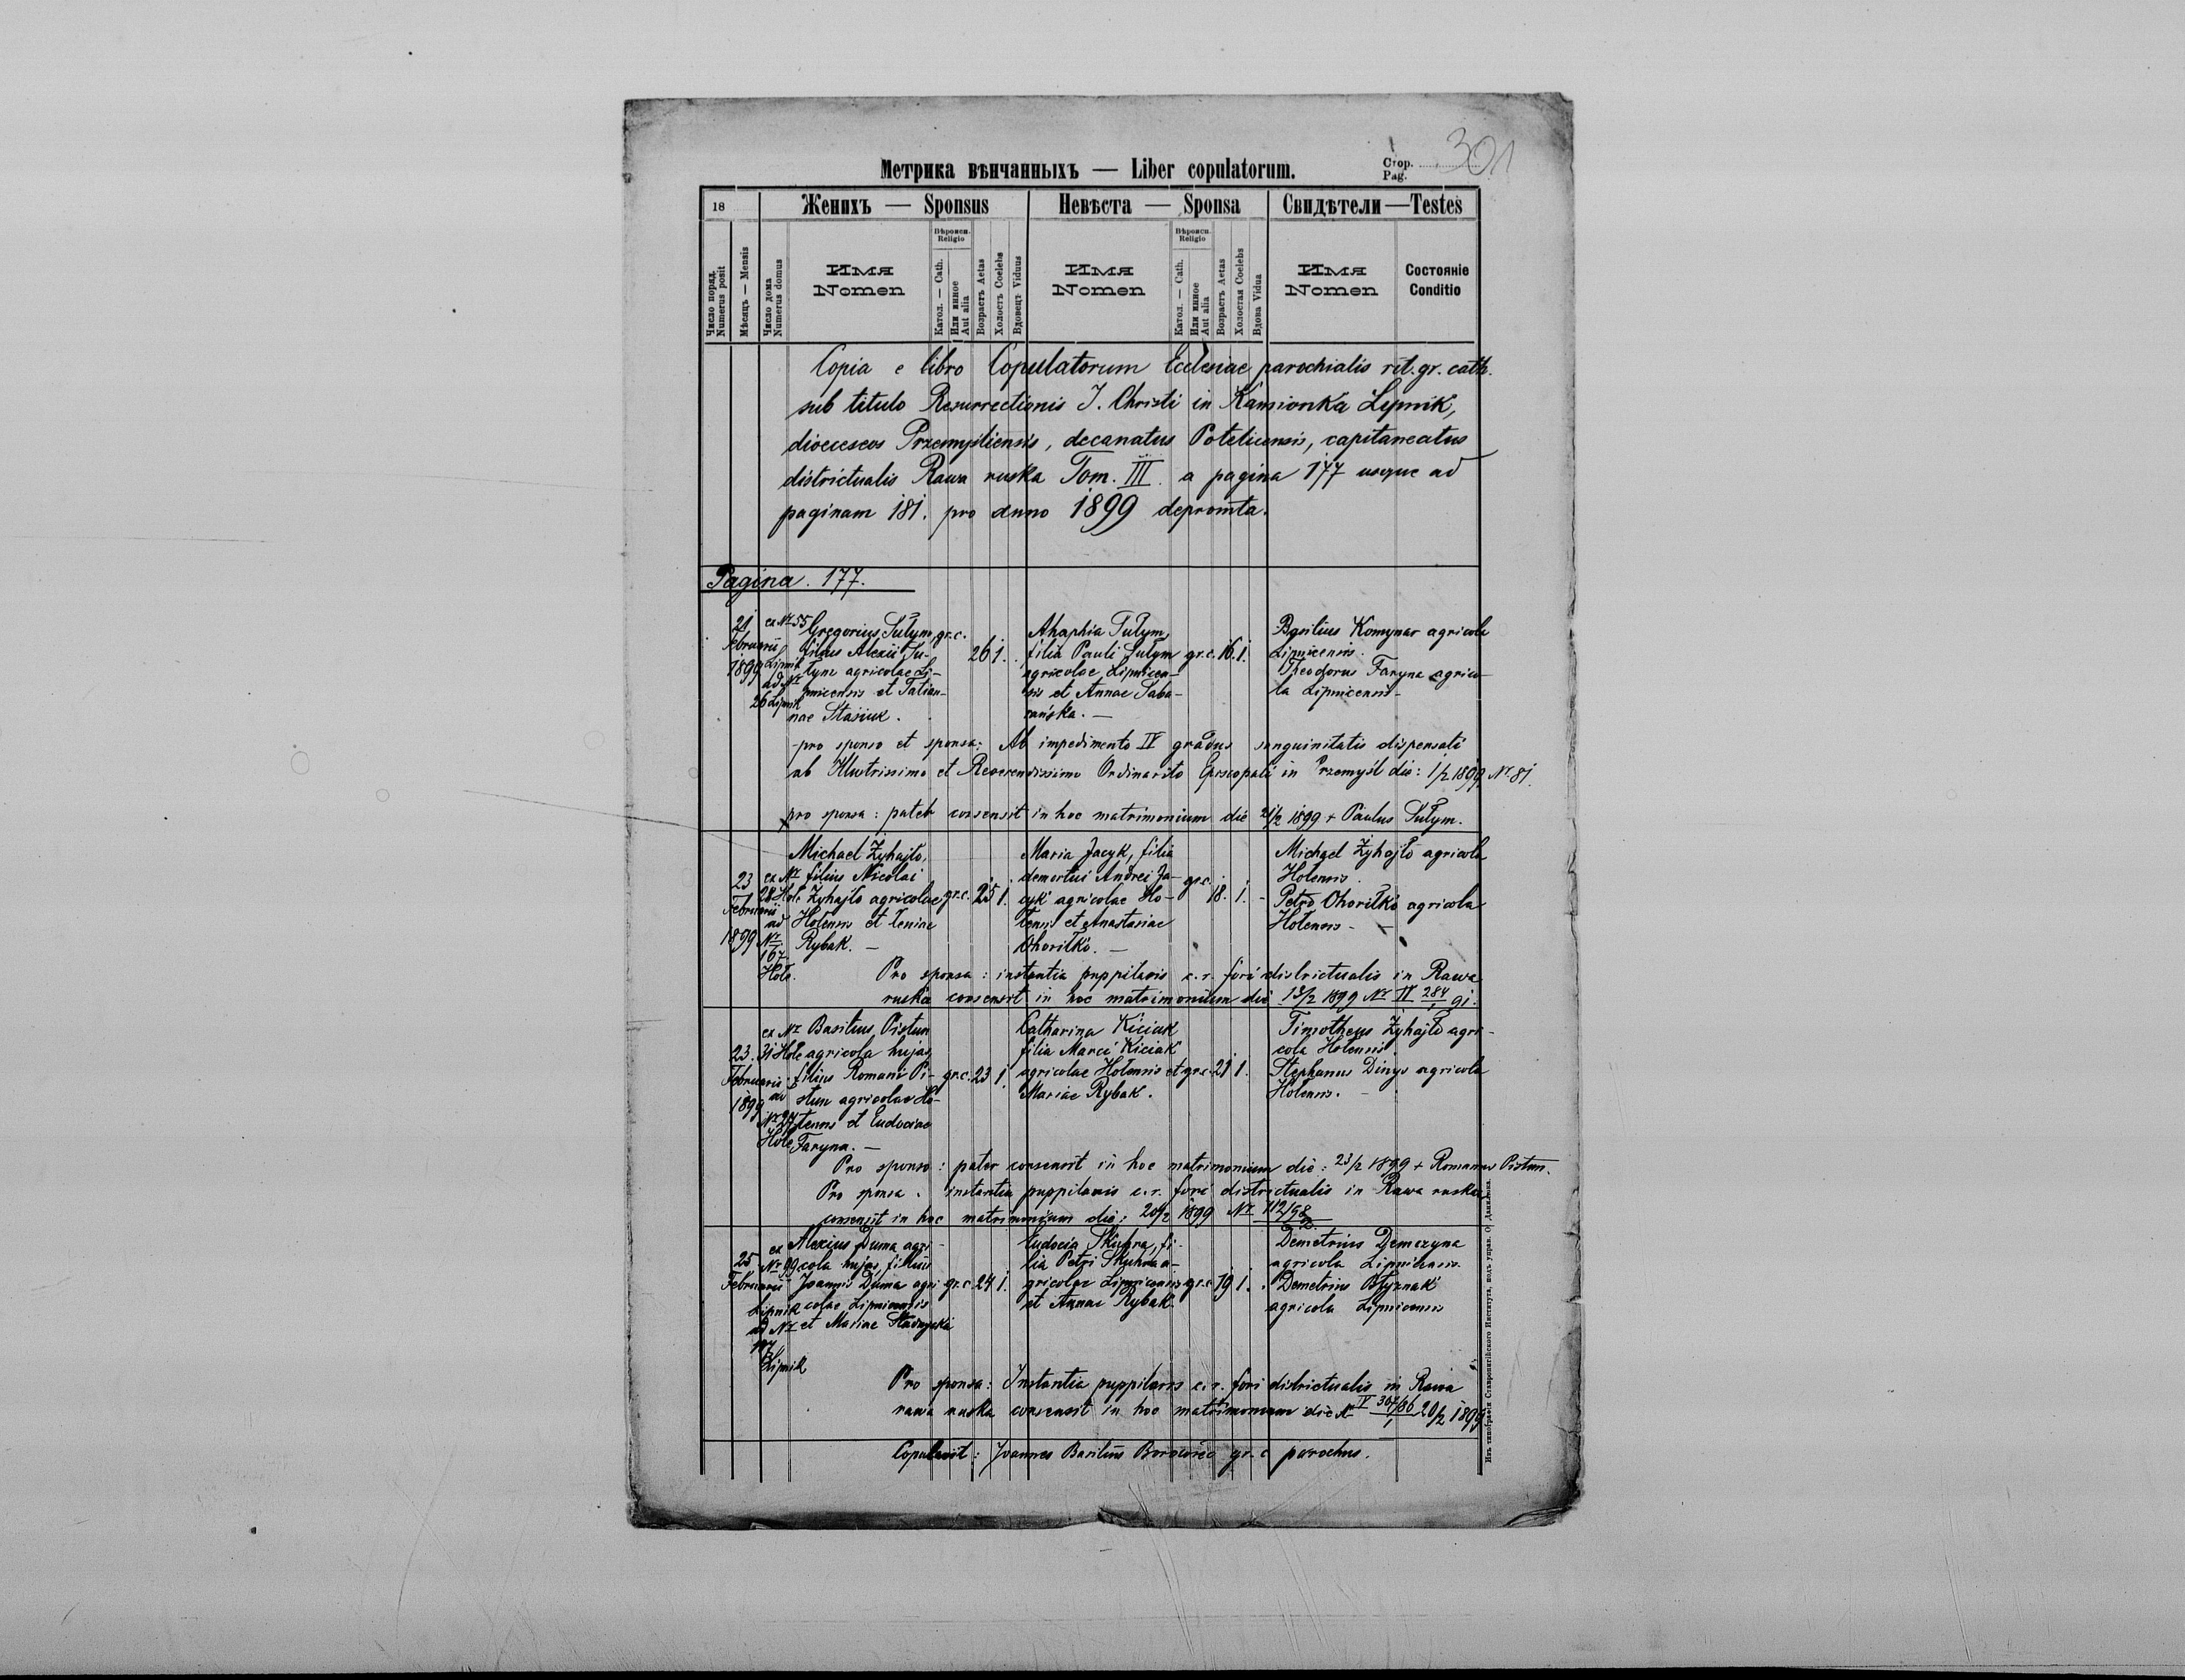 301
Метрика вѣнчанныхъ — Liber copulatorum.
Стор.
Pag.
18
Женихъ — Sponsus
Невѣста — Sponsa
Свидѣтели — Testes
Число поряд.
Numerus posit
Мѣсяцъ — Mensis
Число дома
Numerus domus
Имя
Nomen
Вѣроисп.
Religio
Катол. — Cath.
Или инное
Aut alia
Возрастъ Aetas
Холостъ Coelebs
Вдовецъ Viduus
Имя
Nomen
Вѣроисп.
Religio
Катол. — Cath.
Или инное
Aut alia
Возрастъ Aetas
Холостая Coelebs
Вдова Vidua
Имя
Nomen
Состояніе
Conditio
Copia e libro Copulatorum Ecclesiae parochialis rit. gr. cath.
sub titulo Resurrectionis J. Christi in Kamionka Lipnik,
dioeceseos Przemysliensis, decanatus Potelicensis, capitaneatus
districtualis Rawa ruska Tom. III. a pagina 177 usque ad
paginam 181. pro anno 1899 depromta.
Pagina. 177.
21
Februarii
1899
ex Nr 55
Lipnik
ad Nr
26 Lipnik
Gregorius Sułym,
filius Alexii Su-
łym agricolae Li-
pnicensis et Tatian-
nae Stasiuk.
gr. c.
26 1.
Ahaphia Sułym,
filia Pauli Sułym
agricolae Lipnicen-
sis et Annae Taba-
rańska. —
gr. c. 16. 1.
Basilius Komynar agricola
Lipnicensis.
Theodorus Faryna agrico-
la Lipnicensis -
pro sponso et sponsa: Ab impedimento IV gradus sanguinitatis dispensati
ab Illustrissimo et Reverendissimo Ordinarito Episcopali in Przemyśl die: 1/2 1899 Nr. 81.
pro sponsa: pater consensit in hoc matrimonium die 21/2 1899 + Paulus Sułym.
23
Februarii
1899
ex Nr
28 Hole
ad
Nr
167.
Hole.
Michael Żyhajło,
filius Nicolai
Żyhajło agricolae
Holensis et Xeniae
Rybak. —
gr. c. 25 1.
Maria Jacyk, filia
demortui Andrei Ja-
cyk agricolae Ho-
lensis et Anastasiae
Ohoriłko. —
gr. c. 18. 1. -
Michael Żyhajło agricola
Holensis.
Petro Ohoriłko agricola
Holensis - -
Pro sponsa: instantia puppilaris c. r. fori districtualis in Rawa
ruska consensit in hoc matrimonium die 13/2 1899 Nr IV 284/1 91.
23.
Februarii
1899
ex Nr
31 Hole
ad
Nr 27
Hole
Basilius Pistun
agricola hujas,
filius Romani Pi-
stun agricolae Ho-
lensis et Eudociae
Faryna. —
gr. c. 23 1.
Catharina Kiciak
filia Marci Kiciak
agricolae Holensis et
Mariae Rybak.
gr. c. 21 1.
Timotheus Żyhajło agri-
cola Holensis.
Stephanus Dinys agricola
Holensis. -
Pro sponso: pater consensit in hoc matrimonium die: 23/2 1899 + Romanus Pistun.
Pro sponsa. instantia puppilaris c. r. fori districtualis in Rawa ruska
consensit in hoc matrimonium die: 20/2 1899 Nr 112/98
2.
25
Februarii
ex
Nr 99
Lipnik
ad Nr
Lipnik
Alexius Duma agri-
cola hujas, filius
Joannis Duma agri
colae Lipnicensis
et Mariae
gr. c. 24 1.
Eudocia Skuhra, fi-
lia Petri Skuhra a-
gricolae Lipnicensis
et Annae Rybak.
gr. c. 19 1.
Demetrius Demczyna
agricola Lipnicensis.
Demetrius Błyznak
agricola Lipnicensis
Pro sponsa: Instantia puppilaris c. r. fori districtualis in Rawa
rawa ruska consensit in hoc matrimonium die Nr IV 307/86 1 20/2 1899
Copulavit: Joannes Basilius gr. c parochus.
Изъ типографіи Ставропигійского Института, подъ управ. О. Данилюка.